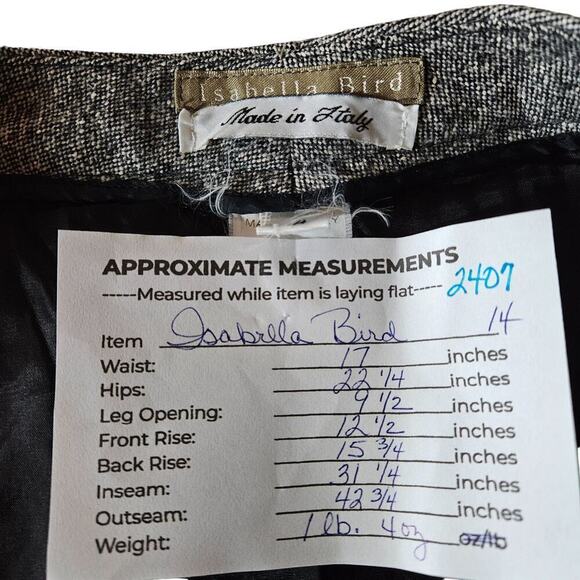 Isabella Bird
Made in Italy
MA
APPROXIMATE MEASUREMENTS
-----Measured while item is laying flat-----
2407
Item Isabella Bird 14
Waist: 17 inches
Hips: 22 1/4 inches
Leg Opening: 9 1/2 inches
Front Rise: 12 1/2 inches
Back Rise: 15 3/4 inches
Inseam: 31 1/4 inches
Outseam: 42 3/4 inches
Weight: 1 lb. 4 oz oz/lb